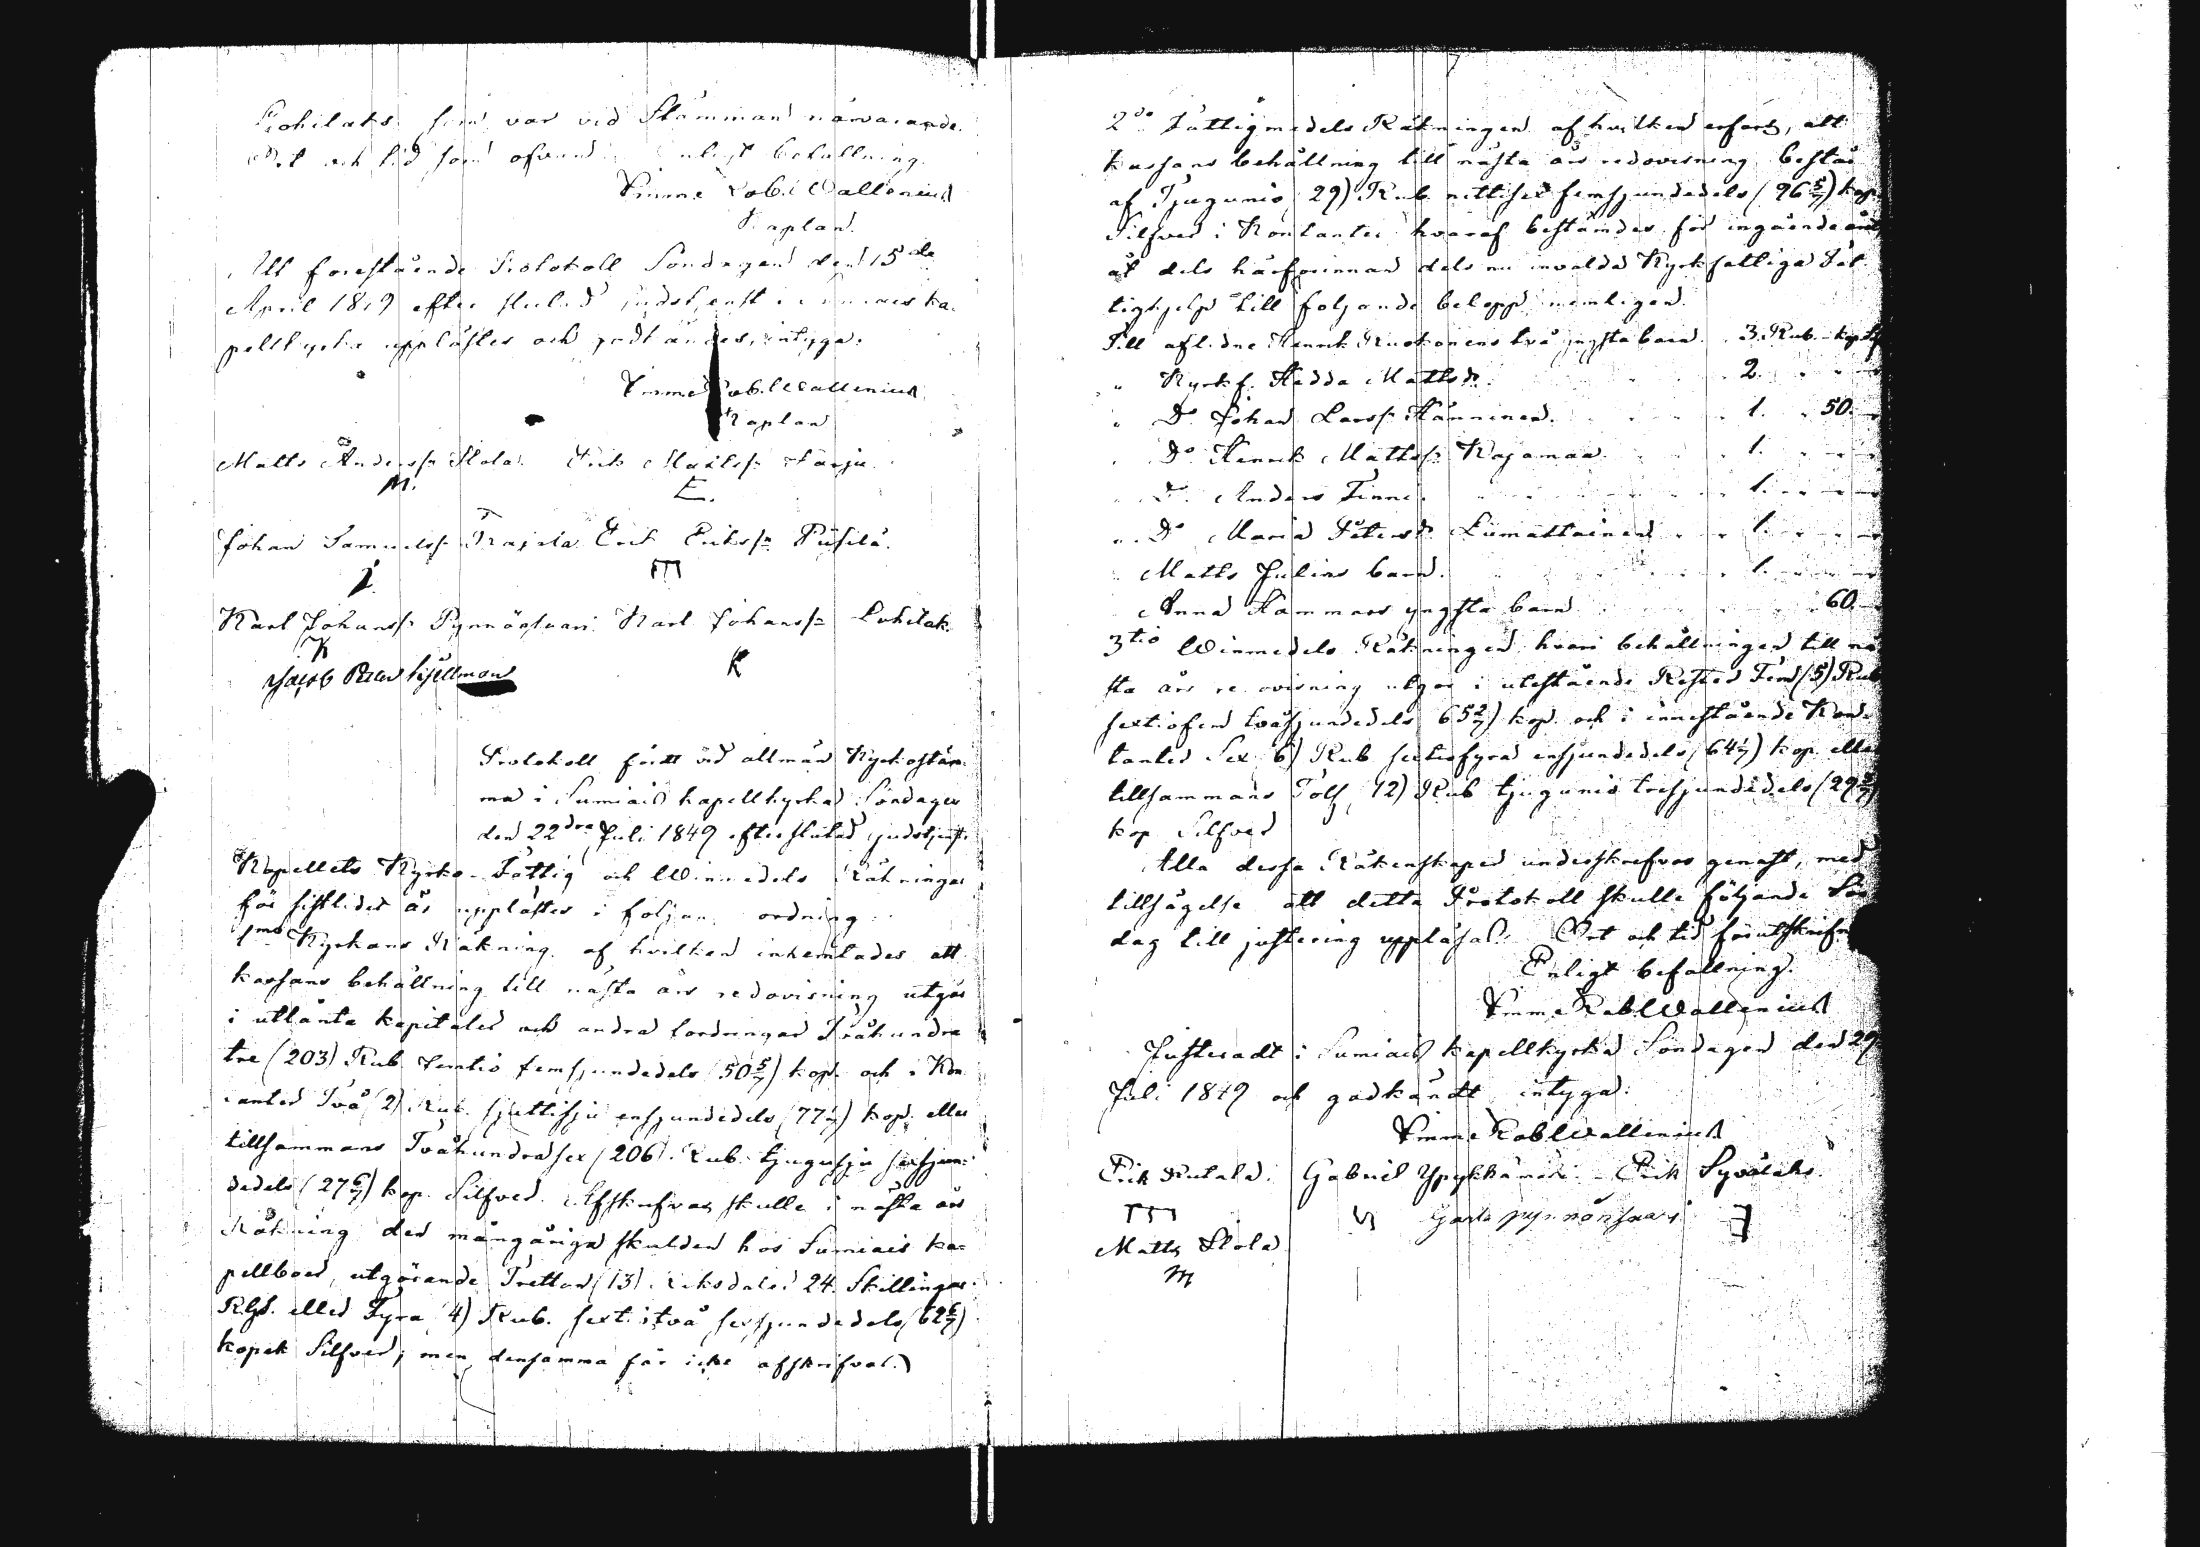 som var vid Stämman närvarande.
Ort och tid som ofvan. enligt befallning.
Vmme Rob. Wallenius
Kaplan.
Att förestående Protokoll Söndagen den 15de
April 1849 efter slutad gudstjenst i Sumiais ka-
pellkyrka upplästes och godkändes, intyga:
Vmme Rob. Wallenius
Kaplan
Matts Anderss: Skola. Erik Mattss:
M. E.
Johan Samuelss: Erik Erikss: Püsilä.
J. E
Karl Johanss: Pynnönsaari Karl Johanss: Lohilak.
K K
Jacob Peter Kjellman
Protokoll fördt vid allmän Kyrkostäm-
ma i Sumiais kapellkyrka Söndagen
den 22dra Juli 1849 efter slutad gudstjenst.
Kapellets Kyrko- Fattig och Winmedels Räkningar
för sistlidet år upplästes i följande ordning:
1mo Kyrkans Räkning, af hvilken inhemtades att
kassans behållning till nästa års redovisning utgör
i utlånta kapitaler och andra fordringar Tvåhundra
tre (203) Rub. femtio femsjundedels (50 5/7) kop. och i Kon-
tanter Två (2) Rub. sjuttisju ensjundedels (77 1/7) kop. eller
tillsammans Tvåhundrasex (206) Rub. tjugusju sexsjun-
dedels (27 6/7) kop. Silfver. Afskrifvas skulle i nästa års
Räkning den mångåriga skulden hos Sumiais ka-
pellboer, utgörande Tretton (13) Riksdaler 24. Skillingar
Rgs. eller Fyra (4) Rub. sextitvå sexsjundedels (62 6/7)
kopek Silfver; men densamma får icke afskrifvas.
2do Fattigmedels Räkningen af hvilken erfors, att
kassans behållning till nästa års redovisning består
af Tjugunio (29) Rub. nittisex femsjundedels (96 5/7) kop.
Silfver i Kontanter hvaraf bestämdes för ingående år,
åt dels härförinnan dels nu invalda Kyrkfattiga Fat-
tighjelp till följande belopp nemligen:
Till aflidne Henrik Ruokonens två yngsta barn . 3. Rub. - kop. Sf
" Kyrkf. Hedda Mattsdr. 2. " - "
" Do Johan Larss: Hänninen. 1. " 50. "
" Do Henrik Mattss: Kajamaa. 1. " - "
" Do Anders Finne. 1. " - "
" Do Maria Petersdr. Liimattainen 1. " - "
" Matts Julins barn. 1. " - "
" Anna Hammars yngsta barn 60. "
3tio Winmedels Räkningen hvari behållningen till nä-
sta års redovisning utgör i utestående Rester Fem (5) Rub
sextiofem tvåsjundedels (65 2/7) kop. och i innestående Kon-
tanter Sex (6) Rub sextiofyra ensjundedels (64 1/7) kop. eller
tillsammans Tolf (12) Rub tjugunio tresjundedels (29 3/7)
kop Silfver
Alla dessa Räkenskaper underskrefvos genast, med
tillsägelse att detta Protokoll skulle följande Sön-
dag till justering uppläsas. Ort och tid förutskrifne
Enligt befallning.
Vmme Rob Wallenius
Justeradt i Sumiais kapellkyrka Söndagen den 29
Juli 1849 och godkändt, intyga:
Vmme Rob Wallenius
Erik Rutala. Gabriel Ypykkämäki. Erik Syvälaks.
Matts Skola
M